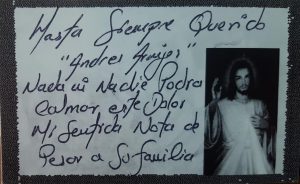 Hasta Siempre Querido
"Andres Araujo"
Nada ni Nadie Podra
Calmar este Dolor
Mi Sentida Nota de
Pesar a Su Familia